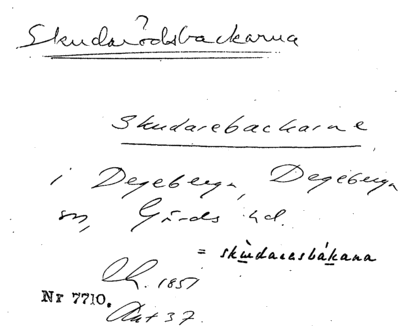 Skudarödsbackarna
?
Skudarebackarne
i Degeberga, Degeberga
sn, Gärds hd.
= skùdaresbákana
Lh. 1851
Nr 7710.
Akt 37.